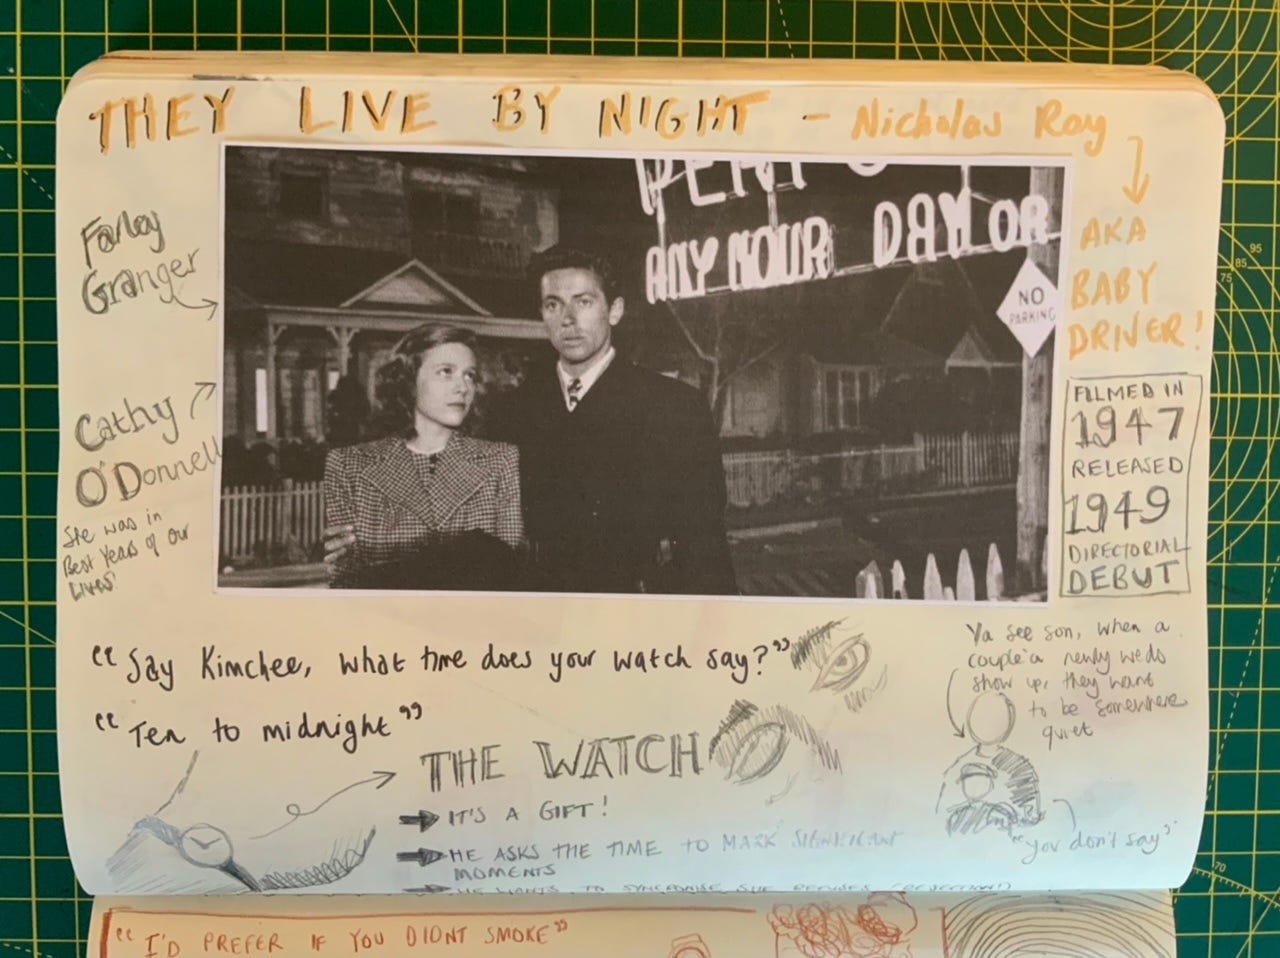 THEY LIVE BY NIGHT - Nicholas Ray
AKA
BABY
DRIVER!
Farley
Granger
Cathy
O'Donnell
She was in
Best Years of our
Lives'
ANY HOUR DAY OR
NO
PARKING
FILMED IN
1947
RELEASED
1949
DIRECTORIAL
DEBUT
"Say Kimchee, what time does your watch say?"
"Ten to midnight"
THE WATCH
IT'S A GIFT!
HE ASKS THE TIME TO MARK SIGNIFICANT
MOMENTS
HE WANTS TO SYNCRONISE SHE REFUSES
Ya see son, when a
couple'a newly weds
show up, they want
to be somewhere
quiet
"you don't say"
"I'D PREFER IF YOU DIDNT SMOKE"
95
85
75
70